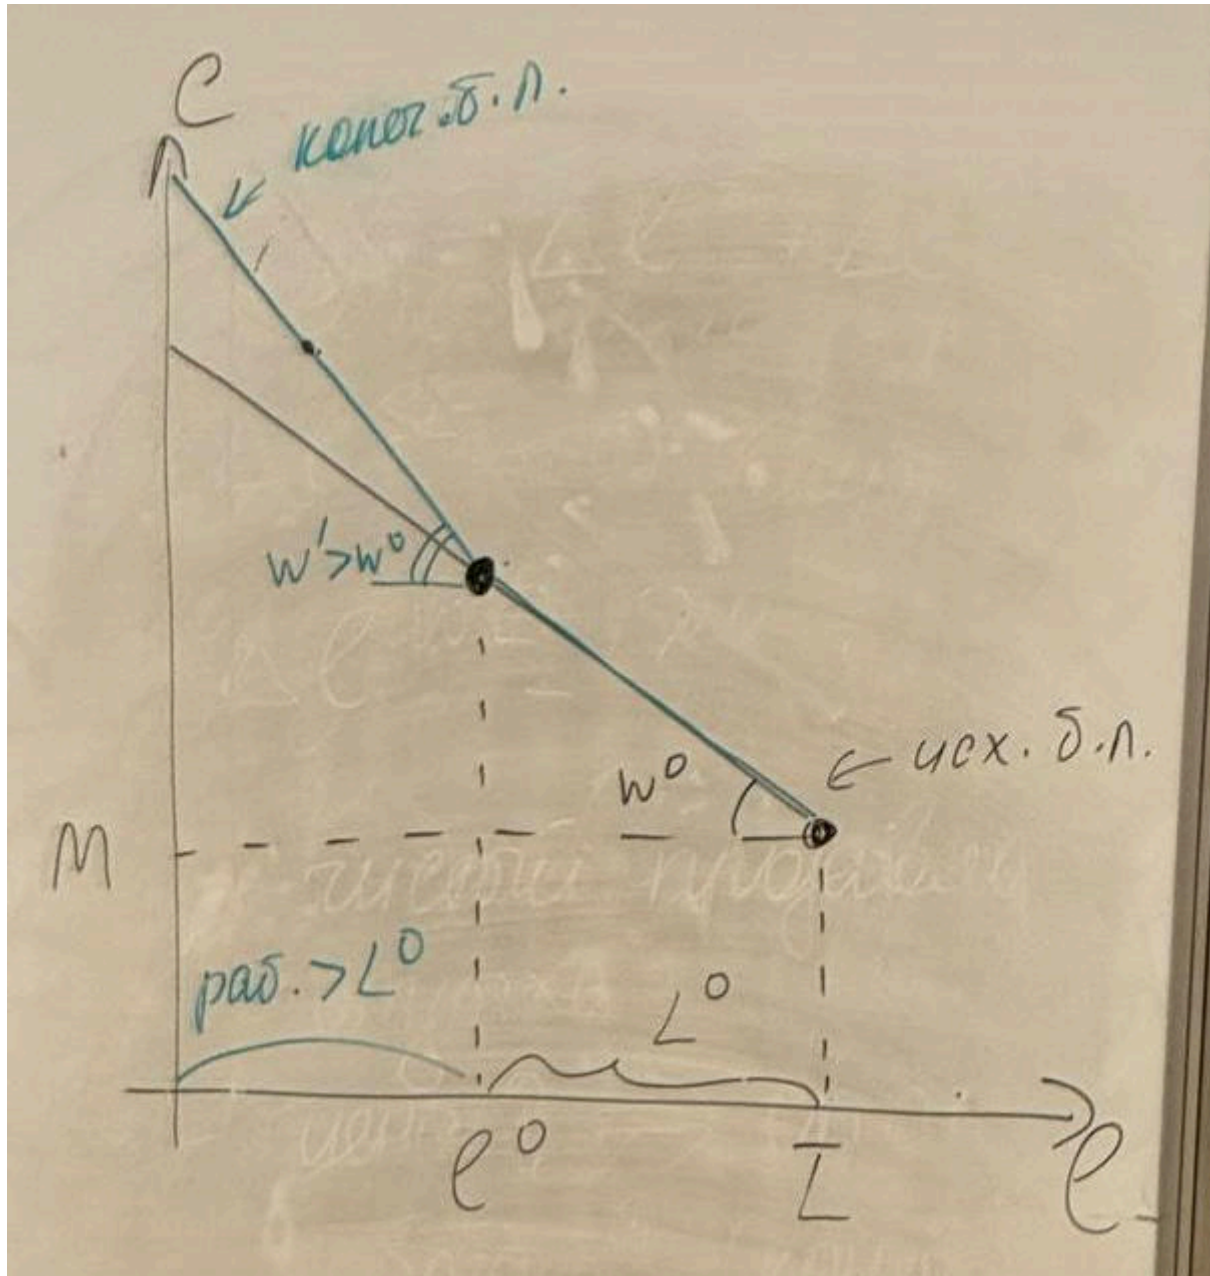 C
конеч. б.л.
w'>w⁰
w⁰
← исх. б.л.
M
раб. >L⁰
L⁰
ℓ⁰
L̅
ℓ